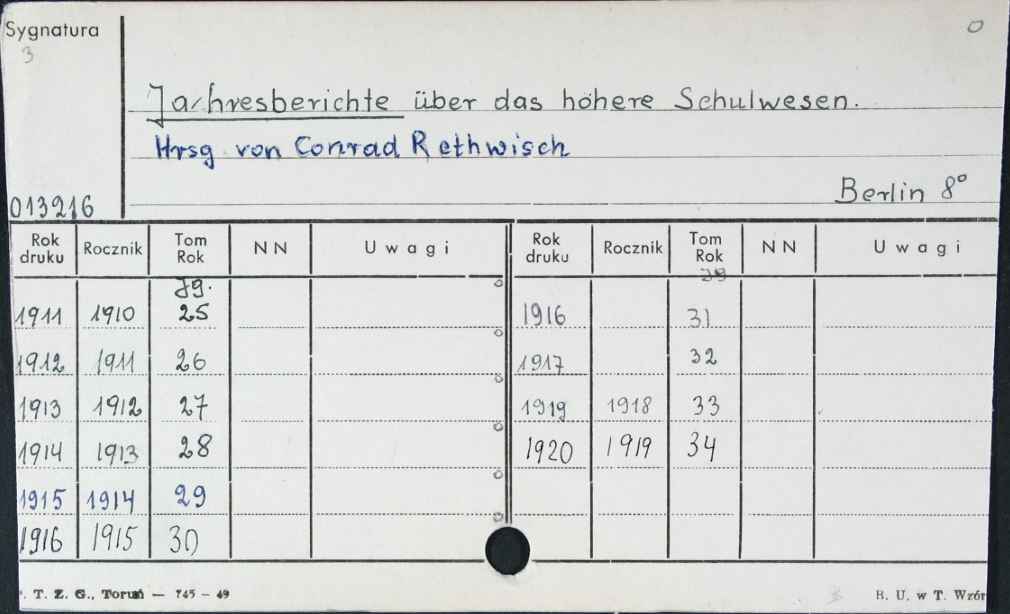 Sygnatura
3
0
Jachresberichte über das höhere Schulwesen.
Hrsg. von Conrad Rethwisch
Berlin 8°
013216
Rok druku Rocznik Tom Rok NN Uwagi Rok druku Rocznik Tom Rok NN Uwagi
Jg. Jg
1911 1910 25 1916 31
1912 1911 26 1917 32
1913 1912 27 1919 1918 33
1914 1913 28 1920 1919 34
1915 1914 29
1916 1915 30
T. Z. G., Toruń — 745 – 49 B. U. w T. Wzór